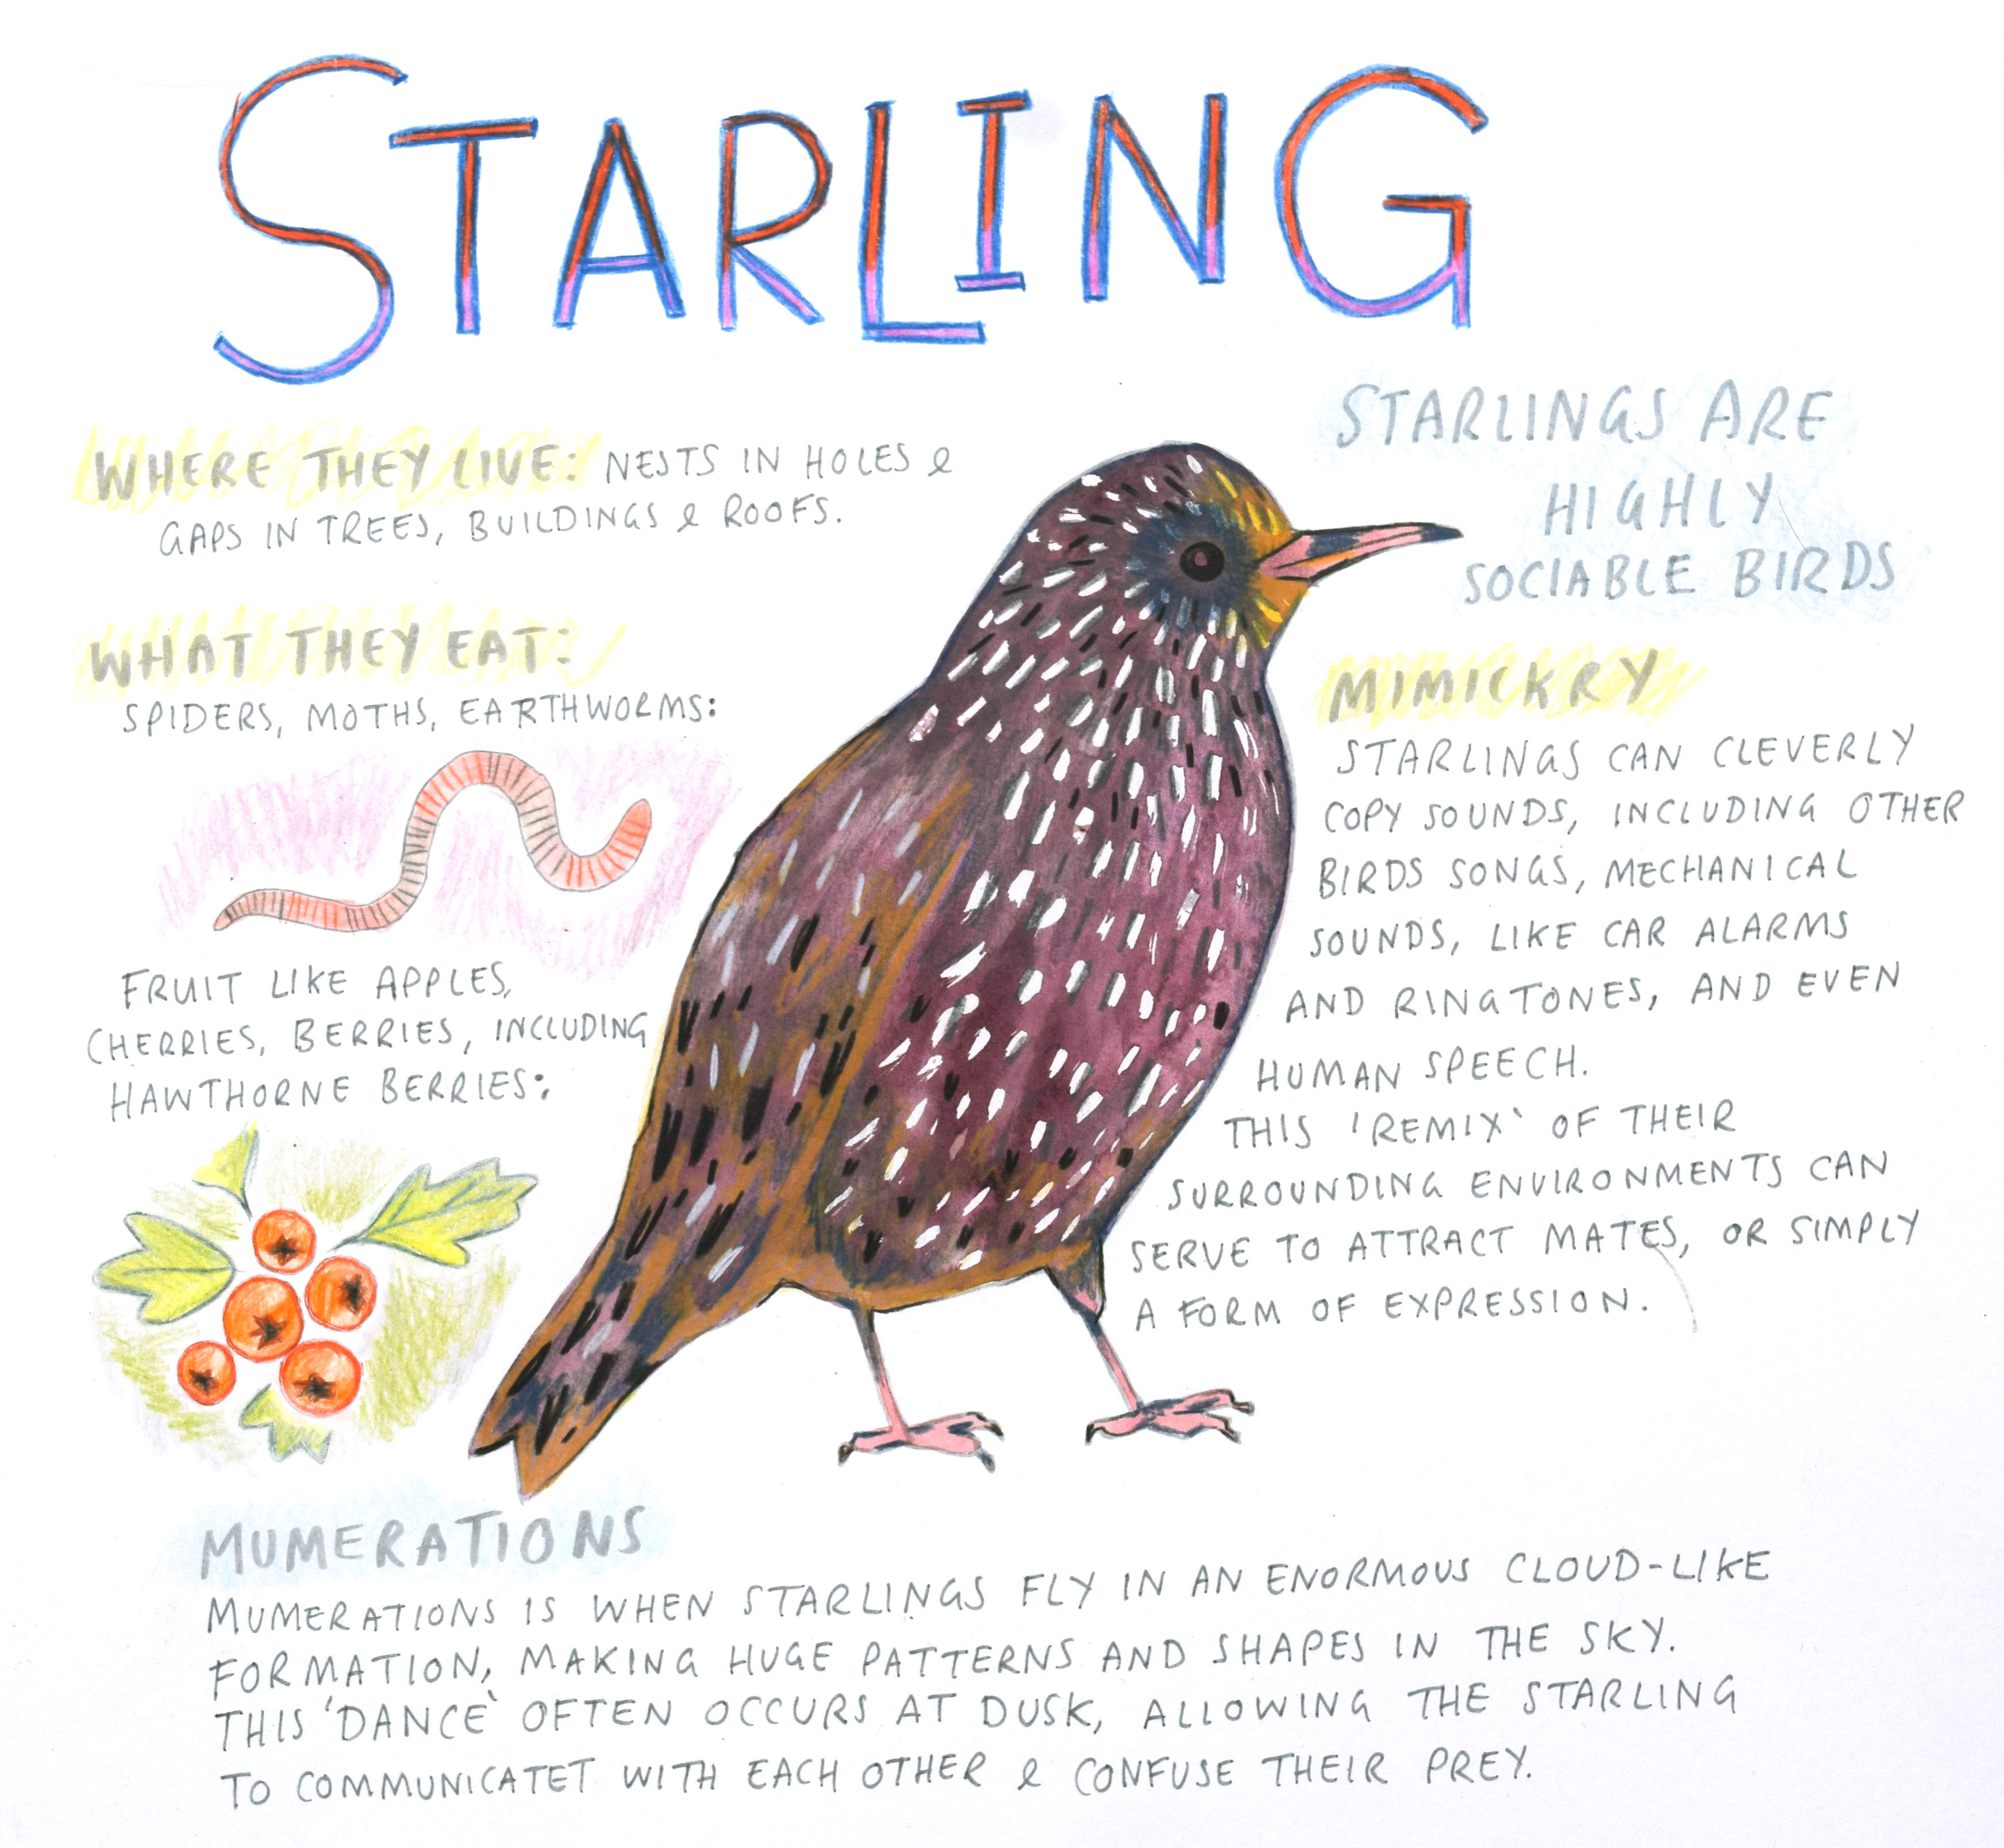 STARLING
WHERE THEY LIVE: NESTS IN HOLES &
GAPS IN TREES, BUILDINGS & ROOFS.
WHAT THEY EAT:
SPIDERS, MOTHS, EARTHWORMS:
FRUIT LIKE APPLES,
CHERRIES, BERRIES, INCLUDING
HAWTHORNE BERRIES:
STARLINGS ARE
HIGHLY
SOCIABLE BIRDS
MIMICKRY
STARLINGS CAN CLEVERLY
COPY SOUNDS, INCLUDING OTHER
BIRDS SONGS, MECHANICAL
SOUNDS, LIKE CAR ALARMS
AND RINGTONES, AND EVEN
HUMAN SPEECH.
THIS 'REMIX' OF THEIR
SURROUNDING ENVIRONMENTS CAN
SERVE TO ATTRACT MATES, OR SIMPLY
A FORM OF EXPRESSION.
MUMERATIONS
MUMERATIONS IS WHEN STARLINGS FLY IN AN ENORMOUS CLOUD-LIKE
FORMATION, MAKING HUGE PATTERNS AND SHAPES IN THE SKY.
THIS 'DANCE' OFTEN OCCURS AT DUSK, ALLOWING THE STARLING
TO COMMUNICATET WITH EACH OTHER & CONFUSE THEIR PREY.